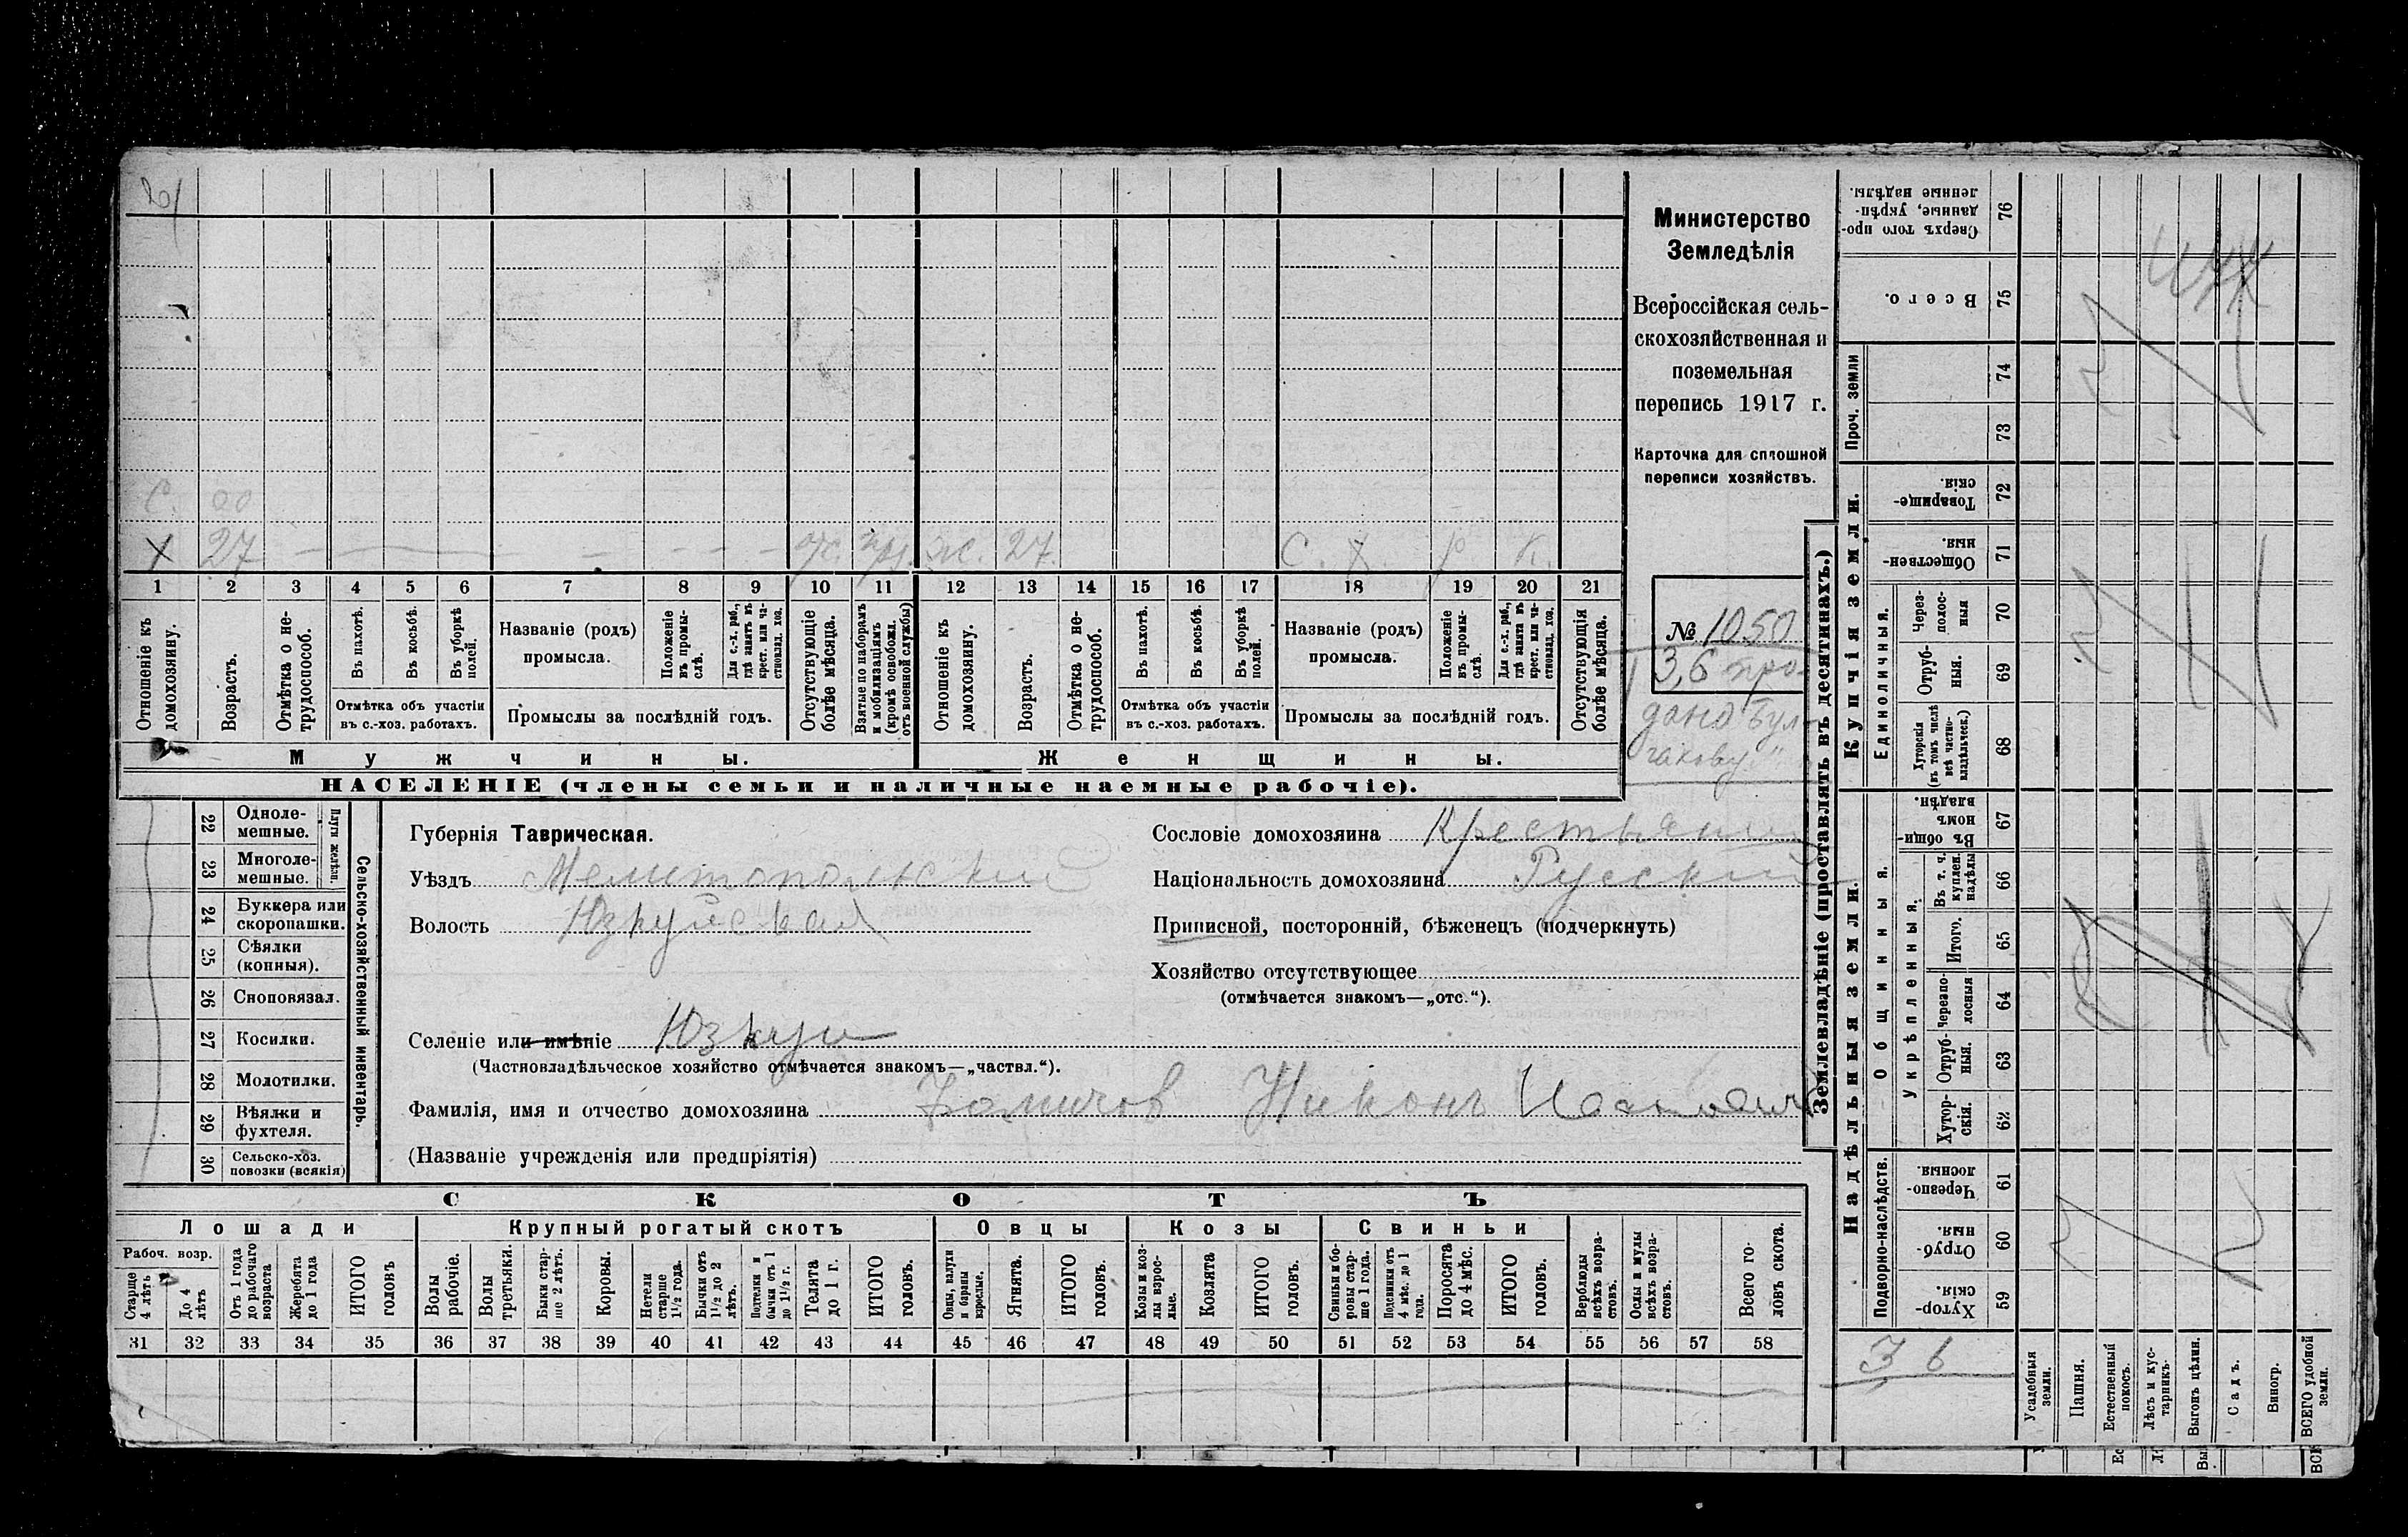 Министерство
Земледѣлія
Всероссійская сель-
скохозяйственная и
поземельная
перепись 1917 г.
Карточка для сплошной
переписи хозяйствъ.
№ 1050
3,6 про-
дано Бул-
гакову"
27
ж. 27 С. Х. р К.
1 2 3 4 5 6 7 8 9 10 11 12 13 14 15 16 17 18 19 20 21
Отношеніе къ домохозяину.
Возрастъ.
Отмѣтка о не-трудоспособ.
Въ пахотѣ.
Въ косьбѣ.
Въ уборкѣ полей.
Отмѣтка объ участіи въ с.-хоз. работахъ.
Названіе (родъ) промысла.
Положеніе въ промы-слѣ.
Для с.-х. раб., гдѣ занятъ въ крест. или ча-стновлад. хоз.
Промыслы за послѣдній годъ.
Отсутствующіе болѣе мѣсяца.
Взятые по наборамъ и мобилизаціямъ (кромѣ освобожд. отъ военной службы)
Отношеніе къ домохозяину.
Возрастъ.
Отмѣтка о не-трудоспособ.
Въ пахотѣ.
Въ косьбѣ.
Въ уборкѣ полей.
Отмѣтка объ участіи въ с.-хоз. работахъ.
Названіе (родъ) промысла.
Положеніе въ промы-слѣ.
Для с.-х. раб., гдѣ занята въ крест. или ча-стновлад. хоз.
Промыслы за послѣдній годъ.
Отсутствующія болѣе мѣсяца.
Мужчины. Женщины.
НАСЕЛЕНІЕ (члены семьи и наличные наемные рабочіе).
22 Одноле-мешные.
23 Многоле-мешные.
Плуги желѣзн.
24 Буккера или скоропашки.
25 Сѣялки (конныя).
26 Сноповязал.
27 Косилки.
28 Молотилки.
29 Вѣялки и фухтеля.
30 Сельско-хоз. повозки (всякія)
Сельско-хозяйственный инвентарь.
Губернія Таврическая.
Уѣздъ Мелитопольскій
Волость Юзкуйская
Селеніе или имѣніе Юзкуи
(Частновладѣльческое хозяйство отмѣчается знакомъ—„частвл.“).
Сословіе домохозяина Крестьянинъ
Національность домохозяина Русскій
Приписной, посторонній, бѣженецъ (подчеркнуть)
Хозяйство отсутствующее
(отмѣчается знакомъ—„отс.“).
Фамилія, имя и отчество домохозяина Никонъ
(Названіе учрежденія или предпріятія)
СКОТЪ
Лошади Крупный рогатый скотъ Овцы Козы Свиньи
Рабоч. возр.
Старше 4 лѣтъ
До 4 лѣтъ
Отъ 1 года до рабочаго возраста
Жеребята до 1 года
ИТОГО головъ
Волы рабочіе.
Волы третьяки.
Быки стар-ше 2 лѣтъ.
Коровы.
Нетели старше 1½ года.
Бычки отъ 1½ до 2 лѣтъ.
Подтелки и бычки отъ 1 до 1½ г.
Телята до 1 г.
ИТОГО головъ.
Овцы, валухи и бараны взрослые.
Ягнята.
ИТОГО головъ.
Козы и коз-лы взрос-лые.
Козлята
ИТОГО головъ.
Свиньи и бо-ровы стар-ше 1 года.
Подсвинки отъ 4 мѣс. до 1 года.
Поросята до 4 мѣс.
ИТОГО головъ.
Верблюды всѣхъ возра-стовъ.
Ослы и мулы всѣхъ возра-стовъ.
Всего го-ловъ скота.
31 32 33 34 35 36 37 38 39 40 41 42 43 44 45 46 47 48 49 50 51 52 53 54 55 56 57 58
Землевладѣніе (проставлять въ десятинахъ.)
Надѣльныя земли. Купчія земли. Проч. земли
Подворно-наслѣдств. Общинныя. Единоличныя.
Укрѣпленныя.
Хутор-скія. 59
Отруб-ныя. 60
Черезпо-лосныя 61
Хутор-скія. 62
Отруб-ныя. 63
Черезпо-лосныя 64
Итого. 65
Въ т. ч. куплен. надѣлы 66
Въ общин-номъ владѣн. 67
Хуторскія (въ томъ числѣ всѣ частно-владѣльческ.) 68
Отруб-ныя. 69
Через-полос-ныя 70
Обществен-ныя. 71
Товарище-скія. 72
73
74
Всего. 75
Сверхъ того про-данные, укрѣп-ленные надѣлы. 76
3 6
Усадебныя земли.
Пашня.
Естественный покосъ.
Лѣсъ и кус-тарникъ.
Выгонъ цѣлин.
Садъ.
Виногр.
ВСЕГО удобной земли.